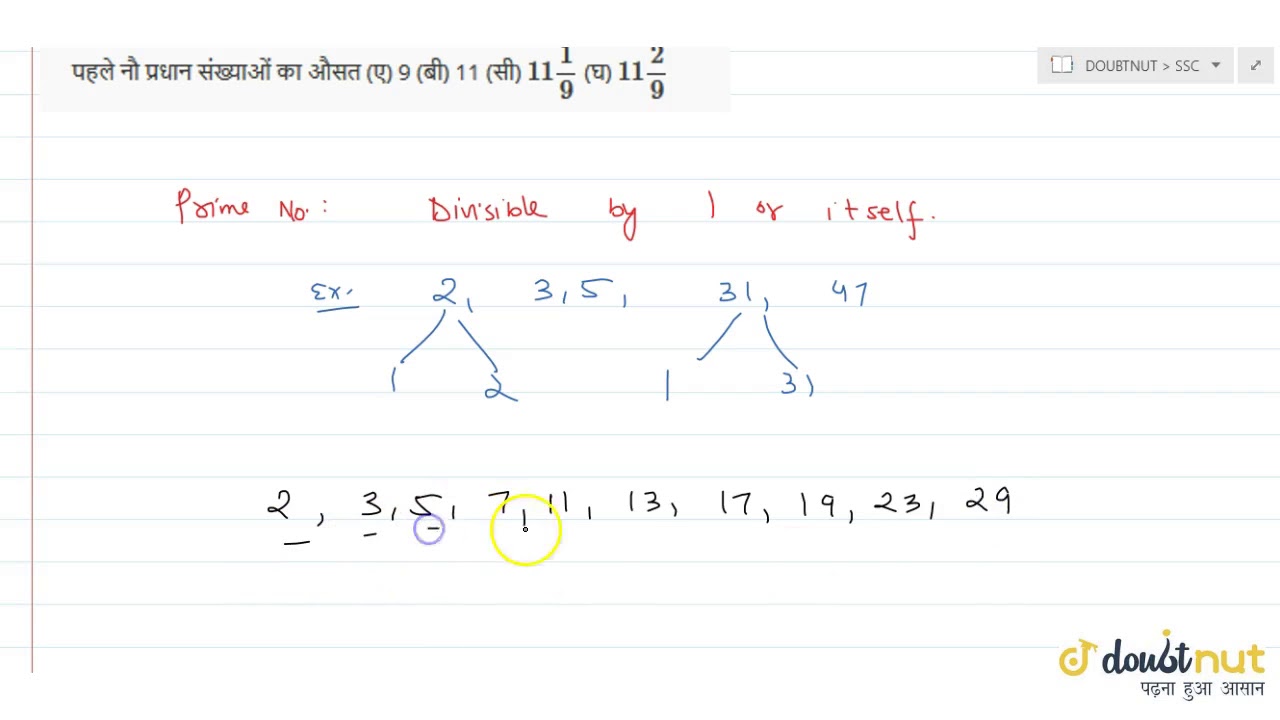 पहले नौ प्रधान संख्याओं का औसत (ए) 9 (बी) 11 (सी) 11 1/9 (घ) 11 2/9
DOUBTNUT > SSC
Prime No.: Divisible by 1 or itself.
Ex. 2, 3, 5, 31, 47
1 2 1 31
2, 3, 5, 7, 11, 13, 17, 19, 23, 29
doubtnut
पढ़ना हुआ आसान